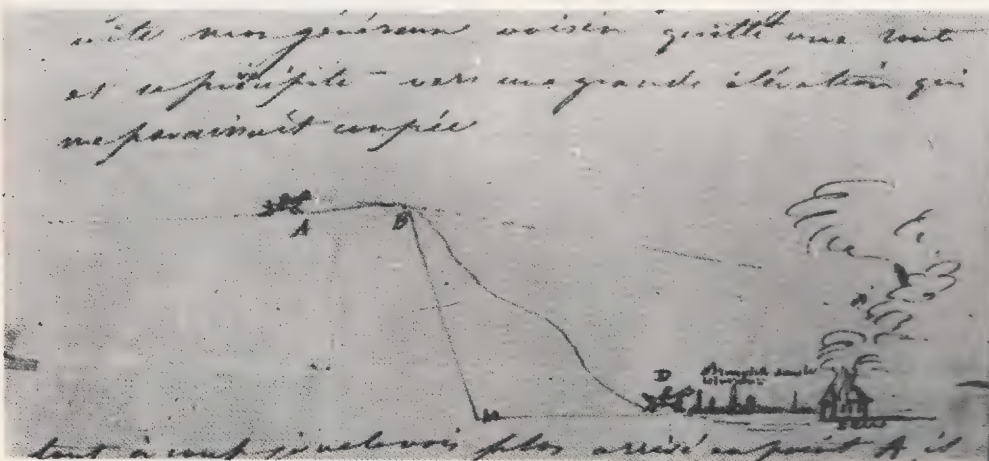 vite mon généreux voisin quitte une
et se précipite – vers une grande élévation qui
me paraissait coupée
A B
D
H
tout à coup je ne le vois plus arrivé au point A il